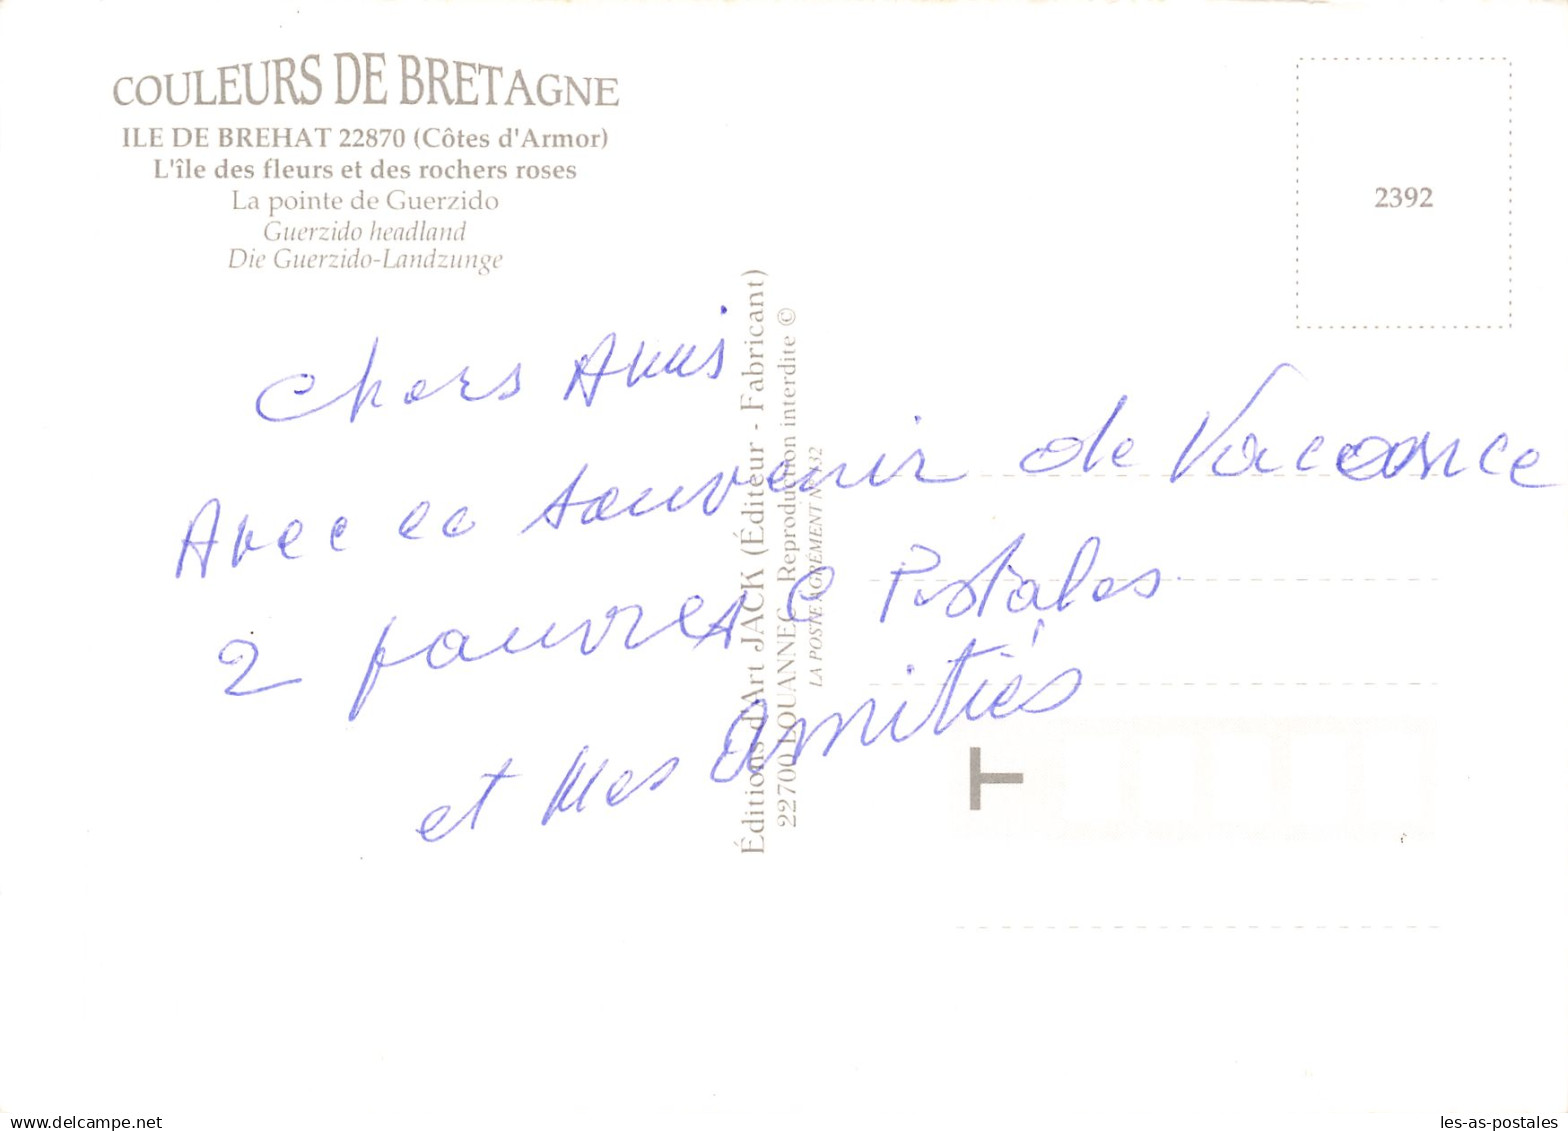 COULEURS DE BRETAGNE
ILE DE BREHAT 22870 (Côtes d'Armor)
L'île des fleurs et des rochers roses
La pointe de Guerzido
Guerzido headland
Die Guerzido-Landzunge
2392
Éditions d'Art JACK (Éditeur - Fabricant)
22700 LOUANNEC Reproduction interdite ©
LA POSTE AGRÉMENT N° 132
Chers Amis
Avec ce souvenir de Vacance
2 pauvres C Postales
et Mes Amitiés
T
www.delcampe.net
les-as-postales